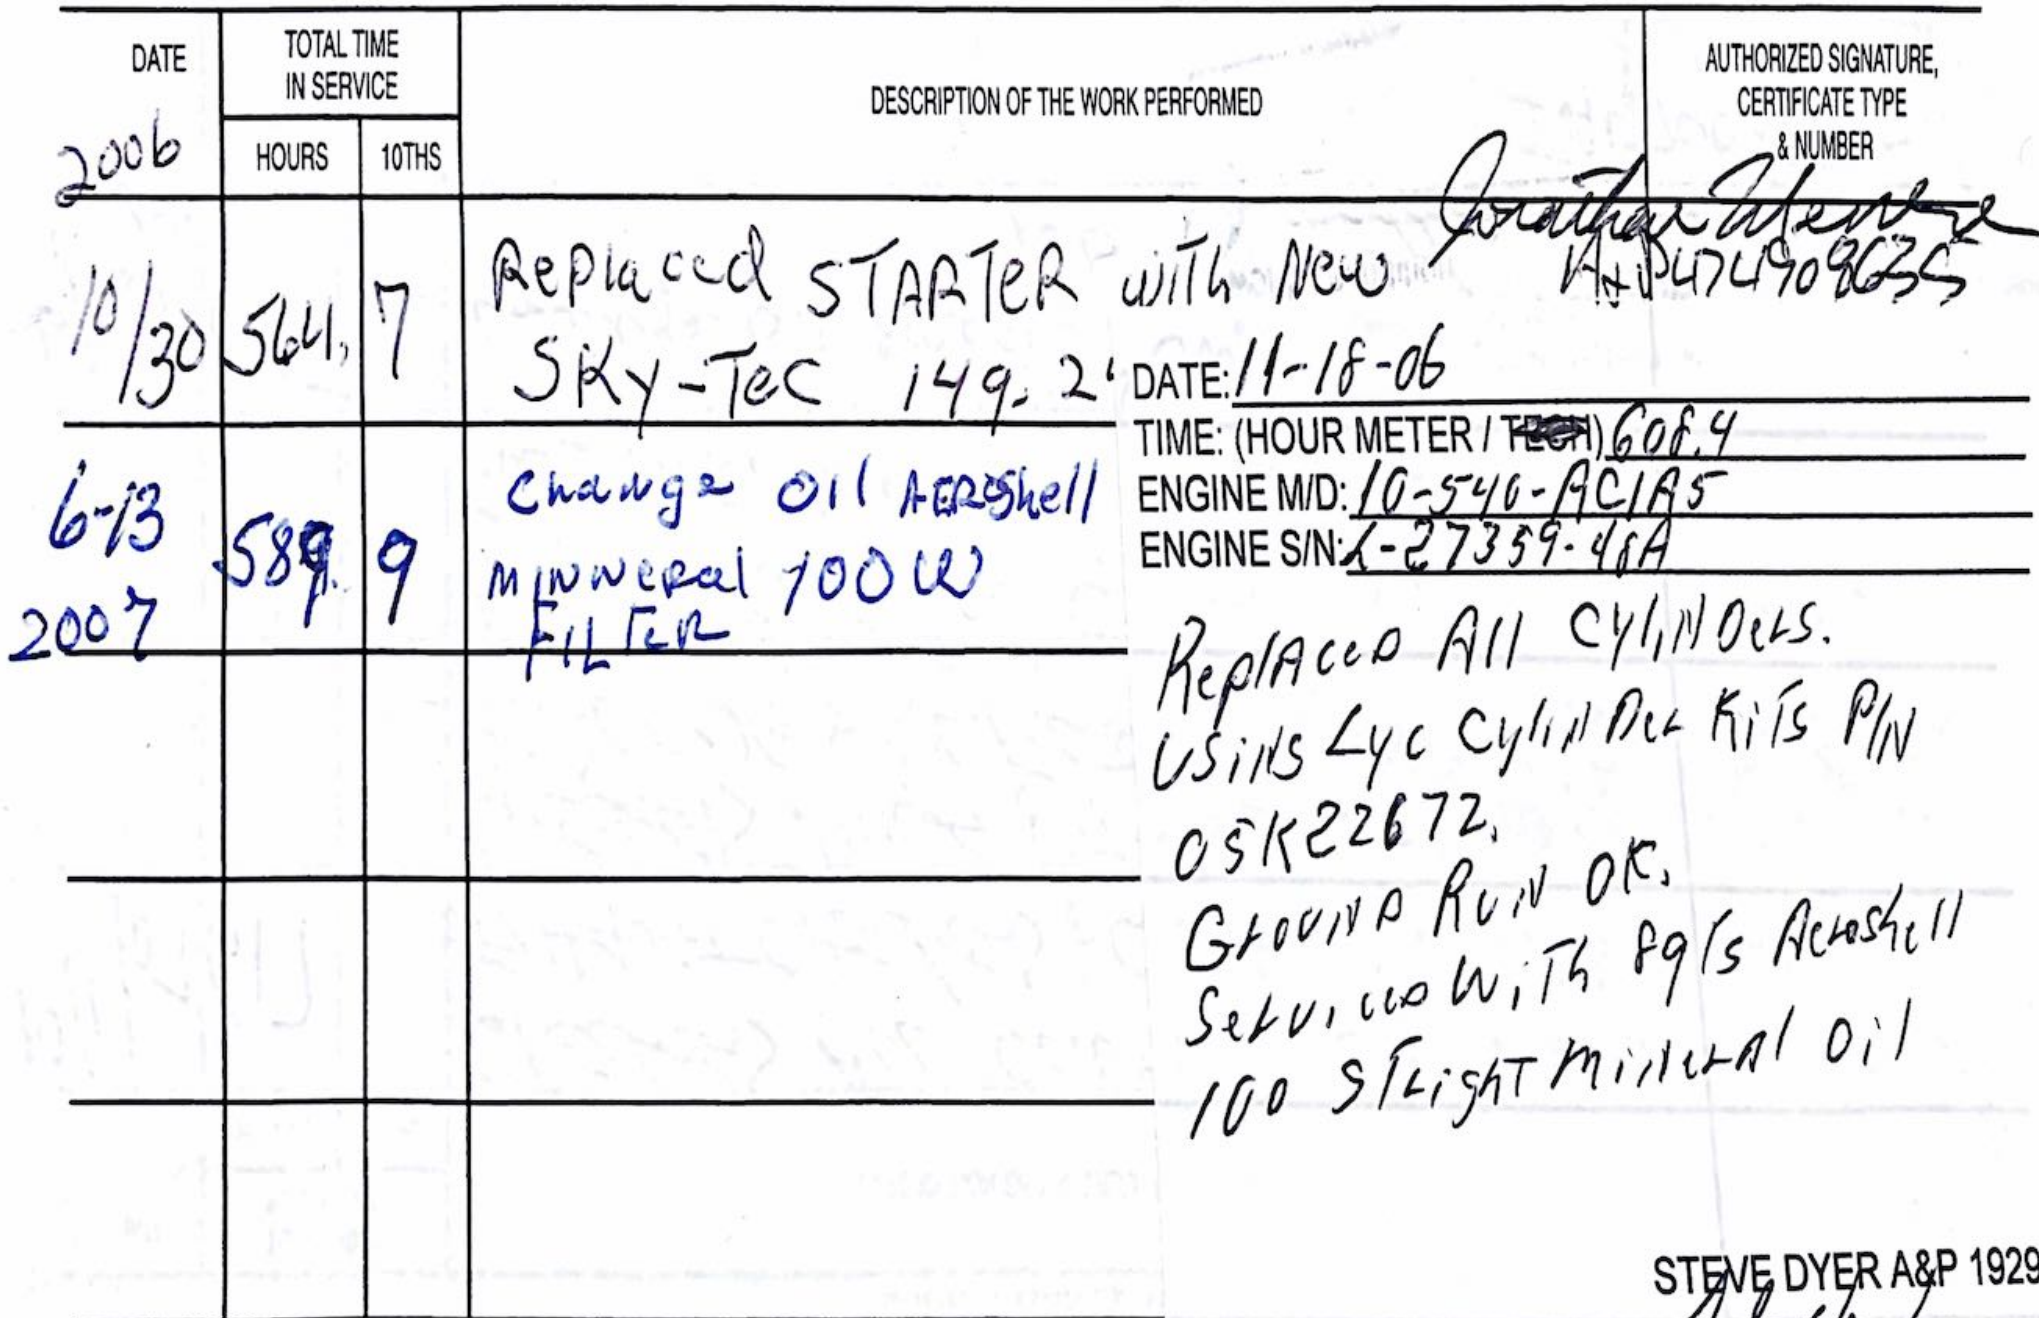 DATE
TOTAL TIME
IN SERVICE
HOURS
10THS
DESCRIPTION OF THE WORK PERFORMED
AUTHORIZED SIGNATURE,
CERTIFICATE TYPE
& NUMBER
2006
10/30 564. 7 Replaced STARTER with New
SKy-Tec 149.
A&P
6-13
2007
589. 9
Change Oil AEROShell
MINNeral 100 W
FILTER
DATE: 11-18-06
TIME: (HOUR METER / TECH) 608.4
ENGINE M/D: IO-540-AC1A5
ENGINE S/N: L-27359-48A
ReplAceD All CyliNDers.
Using Lyc CyliNDer KiTs P/N
05K22672.
GrounD RuN OK.
ServiceD WiTh 8qTs Aeroshell
100 STrighT MinerAl Oil
STEVE DYER A&P 1929